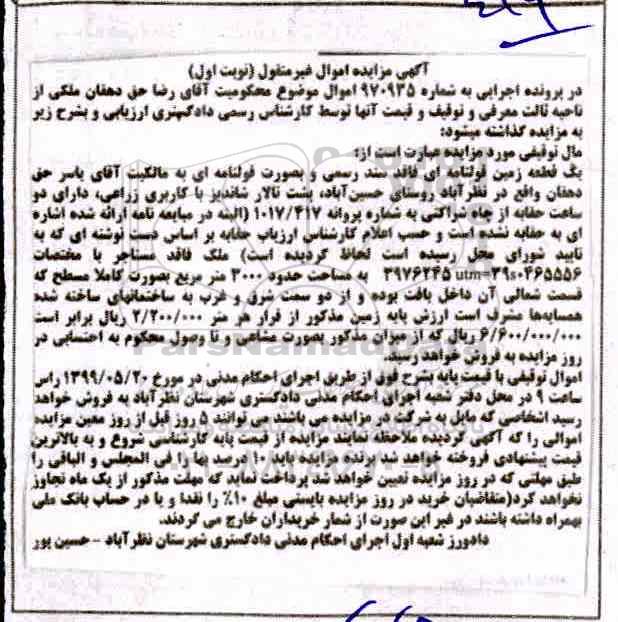 آگهی مزایده اموال غیر منقول (نوبت اول)
در پرونده اجرایی به شماره ۹۷۰۹۳۵ اموال موضوع محکومیت آقای رضا حق دهقان ملکی از
ناحیه ثالث معرفی و توقیف و قیمت آنها توسط کارشناس رسمی دادگستری ارزیابی و بشرح زیر
به مزایده گذاشته میشود:
مال توقیفی مورد مزایده عبارت است از:
یک قطعه زمین قولنامه ای فاقد سند رسمی و بصورت قولنامه ای به مالکیت آقای یاسر حق
دهقان واقع در نظرآباد روستای حسین‌آباد، پشت تالار شاندیز با کاربری زراعی، دارای دو
ساعت حقابه از چاه شراکتی به شماره پروانه ۱۰۱۷/۴۱۷ (البته در مبایعه نامه ارائه شده اشاره
ای به حقابه نشده است و حسب اعلام کارشناس ارزیاب حقابه بر اساس دست نوشته ای که به
تایید شورای محل رسیده است لحاظ گردیده است) ملک فاقد مستاجر با مختصات
utm=۳۹s۰۴۶۵۵۵۶ ۳۹۷۶۲۴۵ به مساحت حدود ۳۰۰۰ متر مربع بصورت کاملا مسطح که
قسمت شمالی آن داخل بافت بوده و از دو سمت شرق و غرب به ساختمانهای ساخته شده
همسایه‌ها مشرف است ارزش پایه زمین مذکور از قرار هر متر ۲/۲۰۰/۰۰۰ ریال برابر است
۶/۶۰۰/۰۰۰/۰۰۰ ریال که از میزان مذکور بصورت مشاعی و تا وصول محکوم به احتسابی در
روز مزایده به فروش خواهد رسید.
اموال توقیفی با قیمت پایه بشرح فوق از طریق اجرای احکام مدنی در مورخ ۱۳۹۹/۰۵/۲۰ راس
ساعت ۹ در محل دفتر شعبه اجرای احکام مدنی دادگستری شهرستان نظرآباد به فروش خواهد
رسید اشخاصی که مایل به شرکت در مزایده می باشند می توانند ۵ روز قبل از روز معین مزایده
اموالی را که آگهی گردیده ملاحظه نمایند مزایده از قیمت پایه کارشناسی شروع و به بالاترین
قیمت پیشنهادی فروخته خواهد شد برنده مزایده باید ۱۰ درصد بها را فی المجلس و الباقی را
طبق مهلتی که در روز مزایده تعیین خواهد شد پرداخت نماید که مهلت مذکور از یک ماه تجاوز
نخواهد کرد(متقاضیان خرید در روز مزایده بایستی مبلغ ۱۰٪ را نقدا و یا در حساب بانک ملی
بهمراه داشته باشند در غیر این صورت از شمار خریداران خارج می گردند.
دادورز شعبه اول اجرای احکام مدنی دادگستری شهرستان نظرآباد - حسین پور